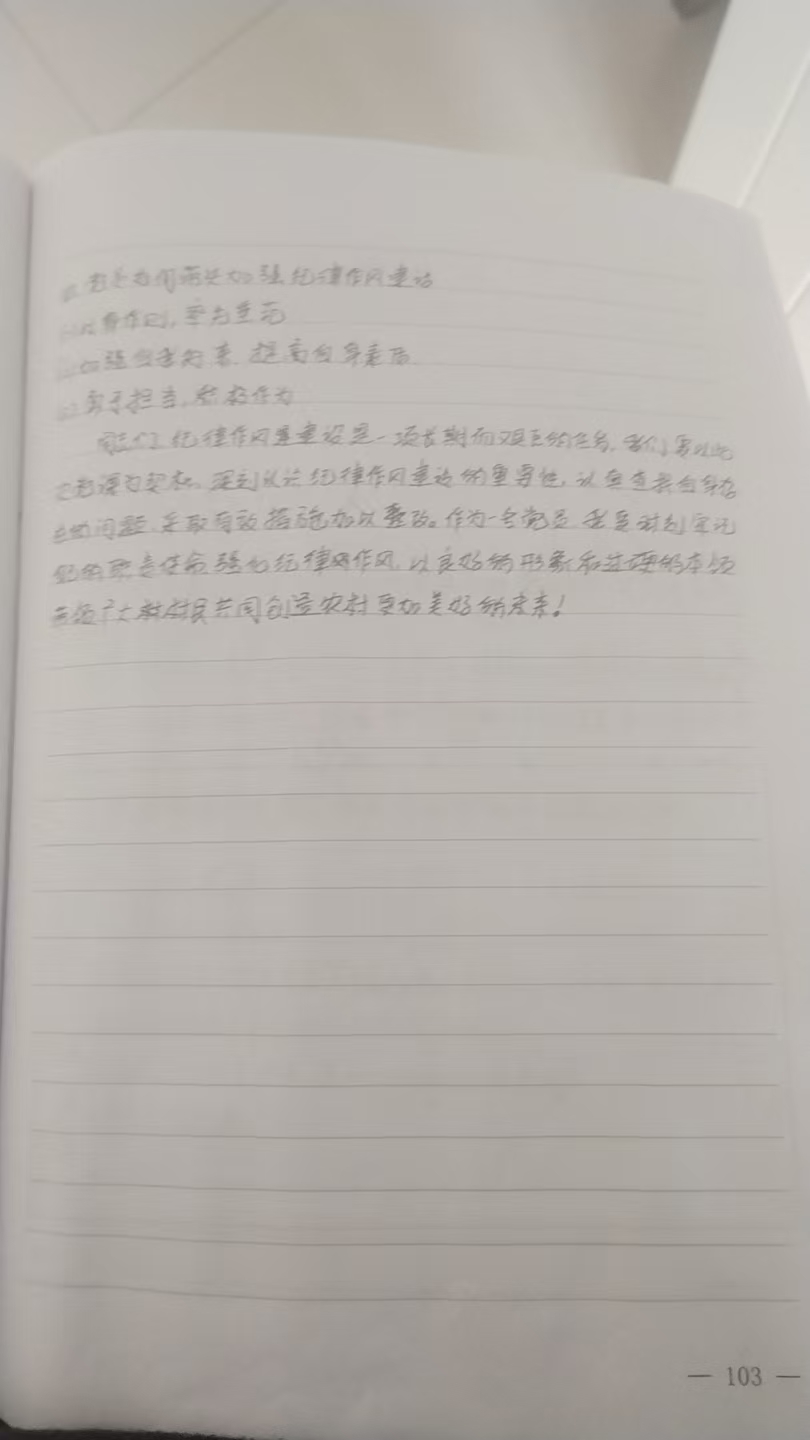 党员如何带头加强纪律作风建设
以身作则，率先垂范
加强自我约束，提高自身素质
勇于担当，积极作为
同志们，纪律作风建设是一项长期而艰巨的任务，我们要以此
次党课为契机，深刻认识纪律作风建设的重要性，认真查摆自身存
在的问题，采取有效措施加以整改。作为一名党员，我要时刻牢记
自己的职责使命，强化纪律作风，以良好的形象和过硬的本领
广大村民共同创造农村更加美好的未来！
— 103 —